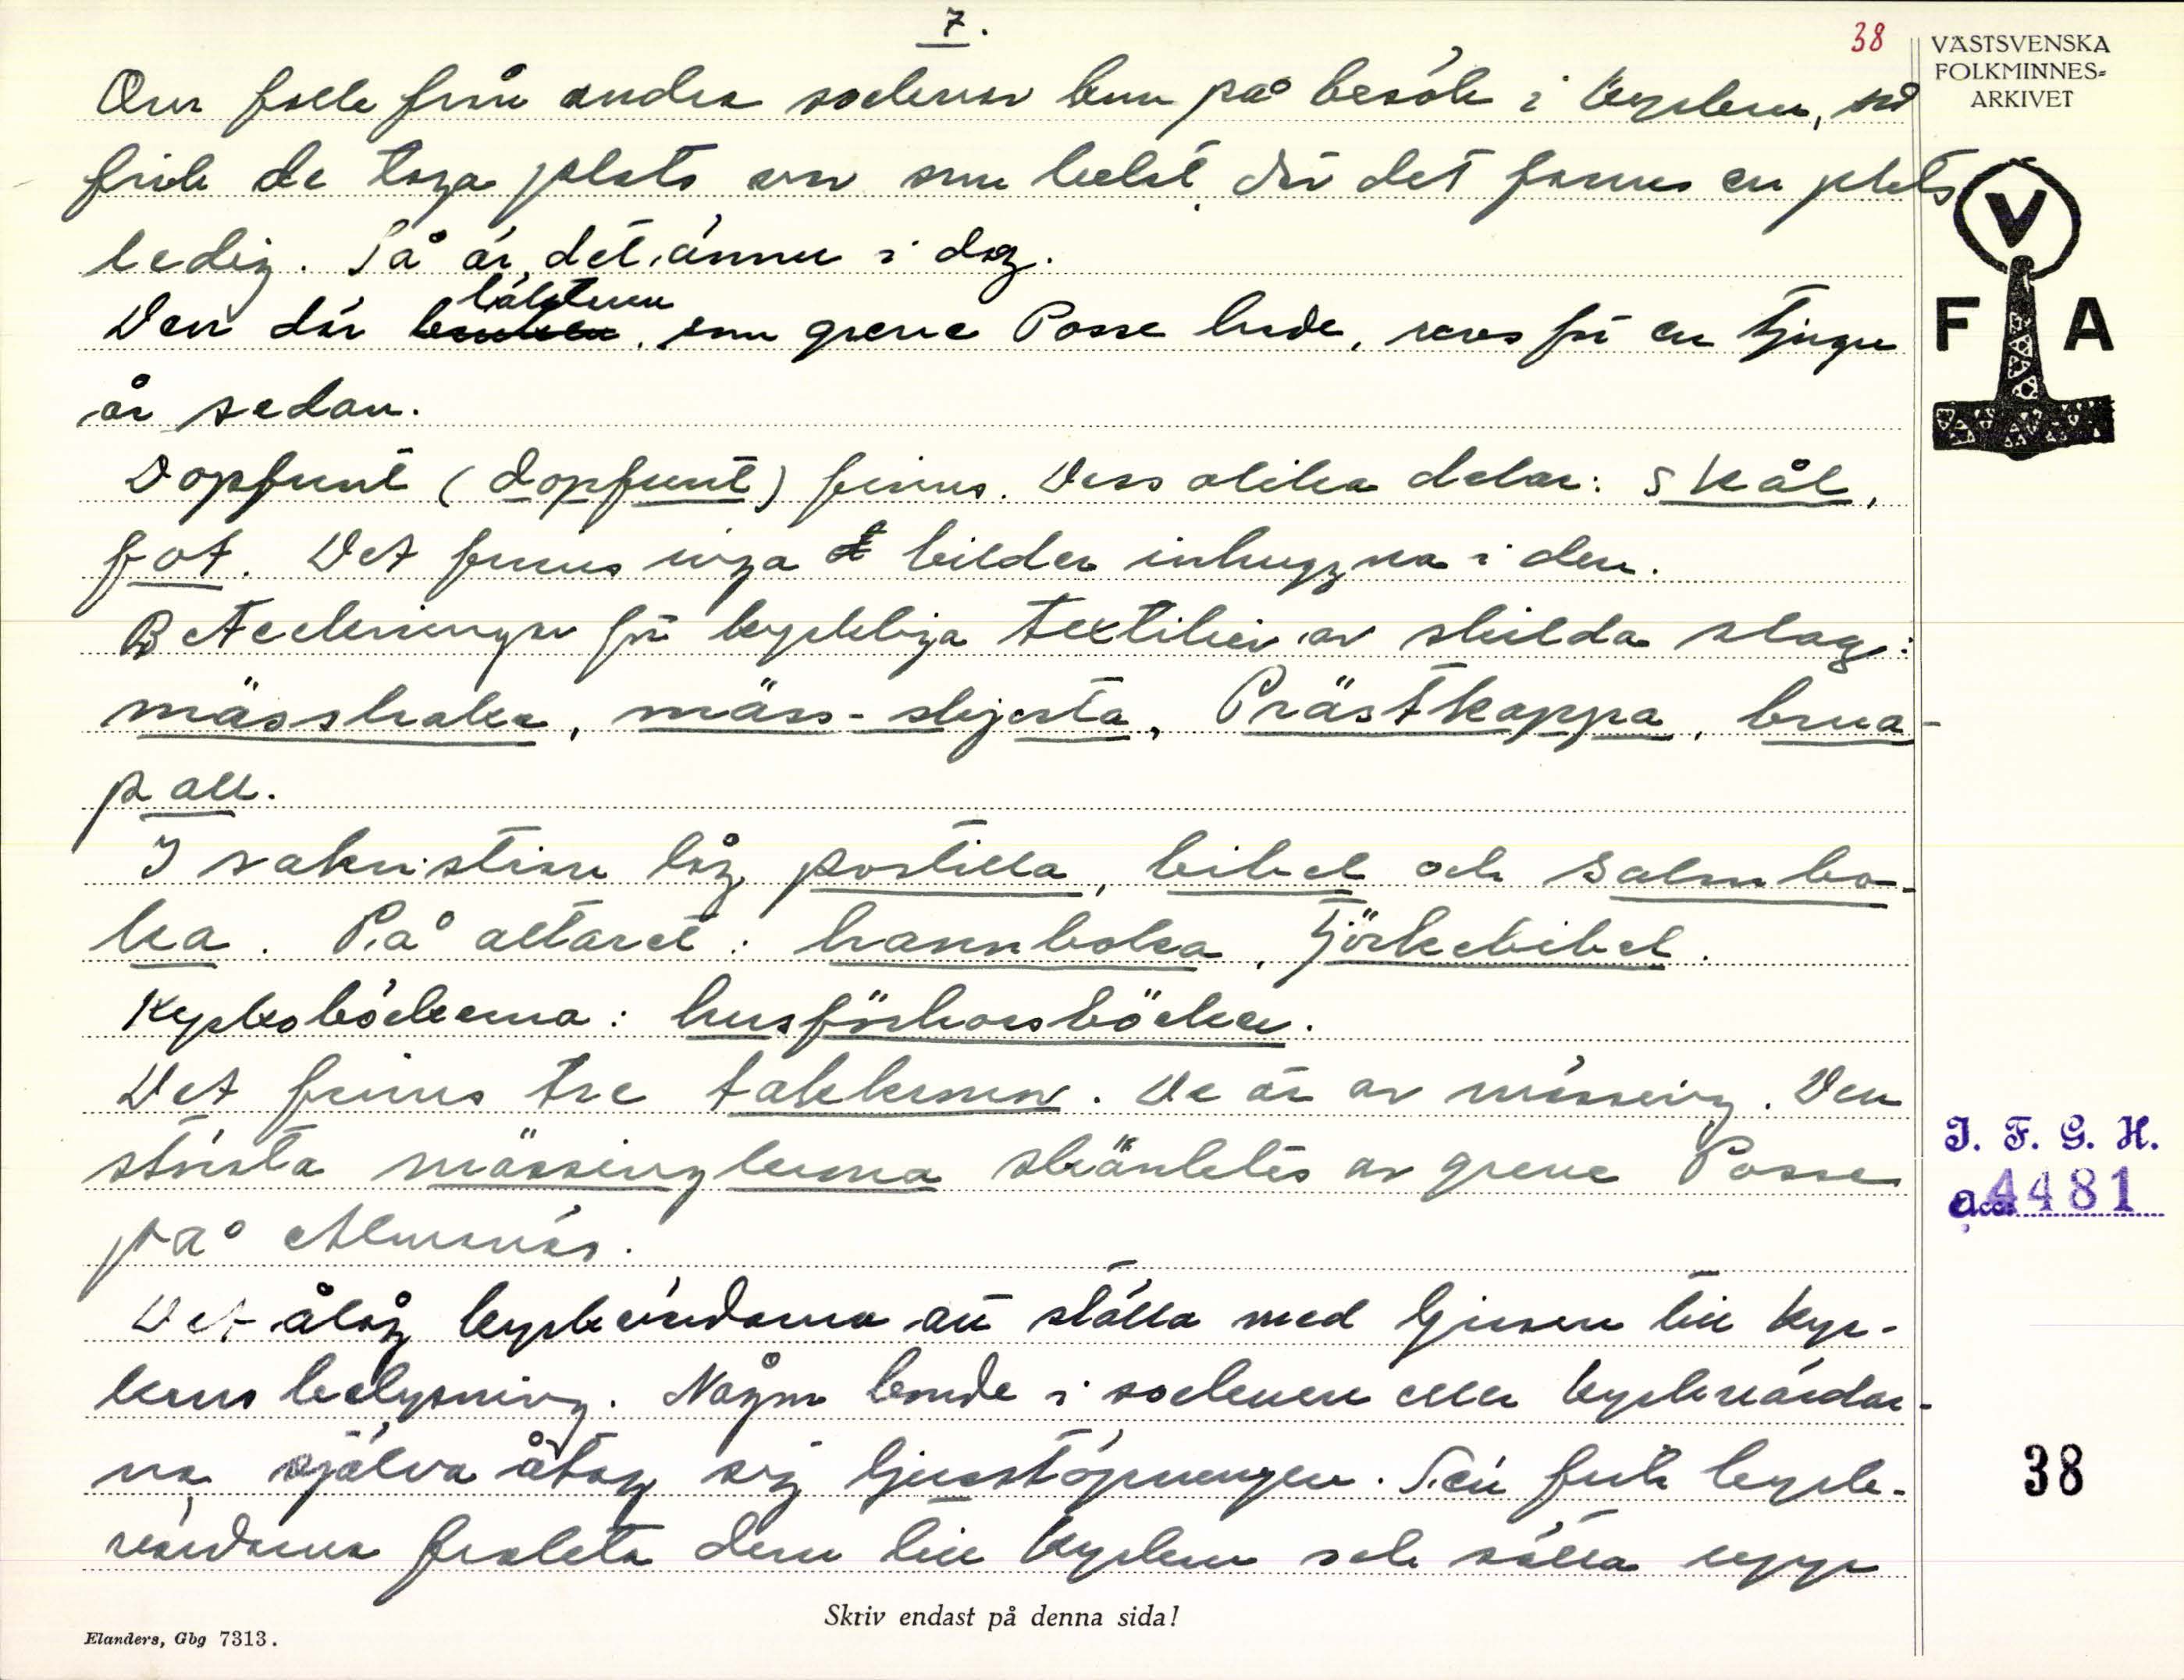 7.
38
VÄSTSVENSKA
FOLKMINNES-
ARKIVET
Om folk från andra socknar kom på besök i kyrkan, så
fick de taga plats var som helst där det fanns en plats
ledig. Så är det ännu i dag.
läktaren
Den där, som greve Posse hade, revs för en tjugu
år sedan.
V
F A
Dopfunt (dopfunt) finns. Dess olika delar: skål,
fot. Det finns inga bilder inhuggna i den.
Beteckningar för kyrkliga textilier av skilda slag:
mässhake, mäss-skjorta, Prästkappa, brua-
pall.
I sakristian låg postilla, bibel och salmbo-
ka. På altaret: hannboka, tjörkebibel.
Kyrkoböckerna: husförhorsböcker.
Det finns tre takkronor. De är av mässing. Den
största mässingkrona skänktes av greve Posse
på Almnäs.
I. F. G. H.
acc. 4481
Det ålåg kyrkvärdarna att ställa med ljusen till kyr-
kans belysning. Någon bonde i socknen eller kyrkvärdar-
na själva åtog sig ljusstöpningen. Sen fick kyrk-
värdarna frakta dem till kyrkan och sätta upp
38
Skriv endast på denna sida!
Elanders, Gbg 7313.